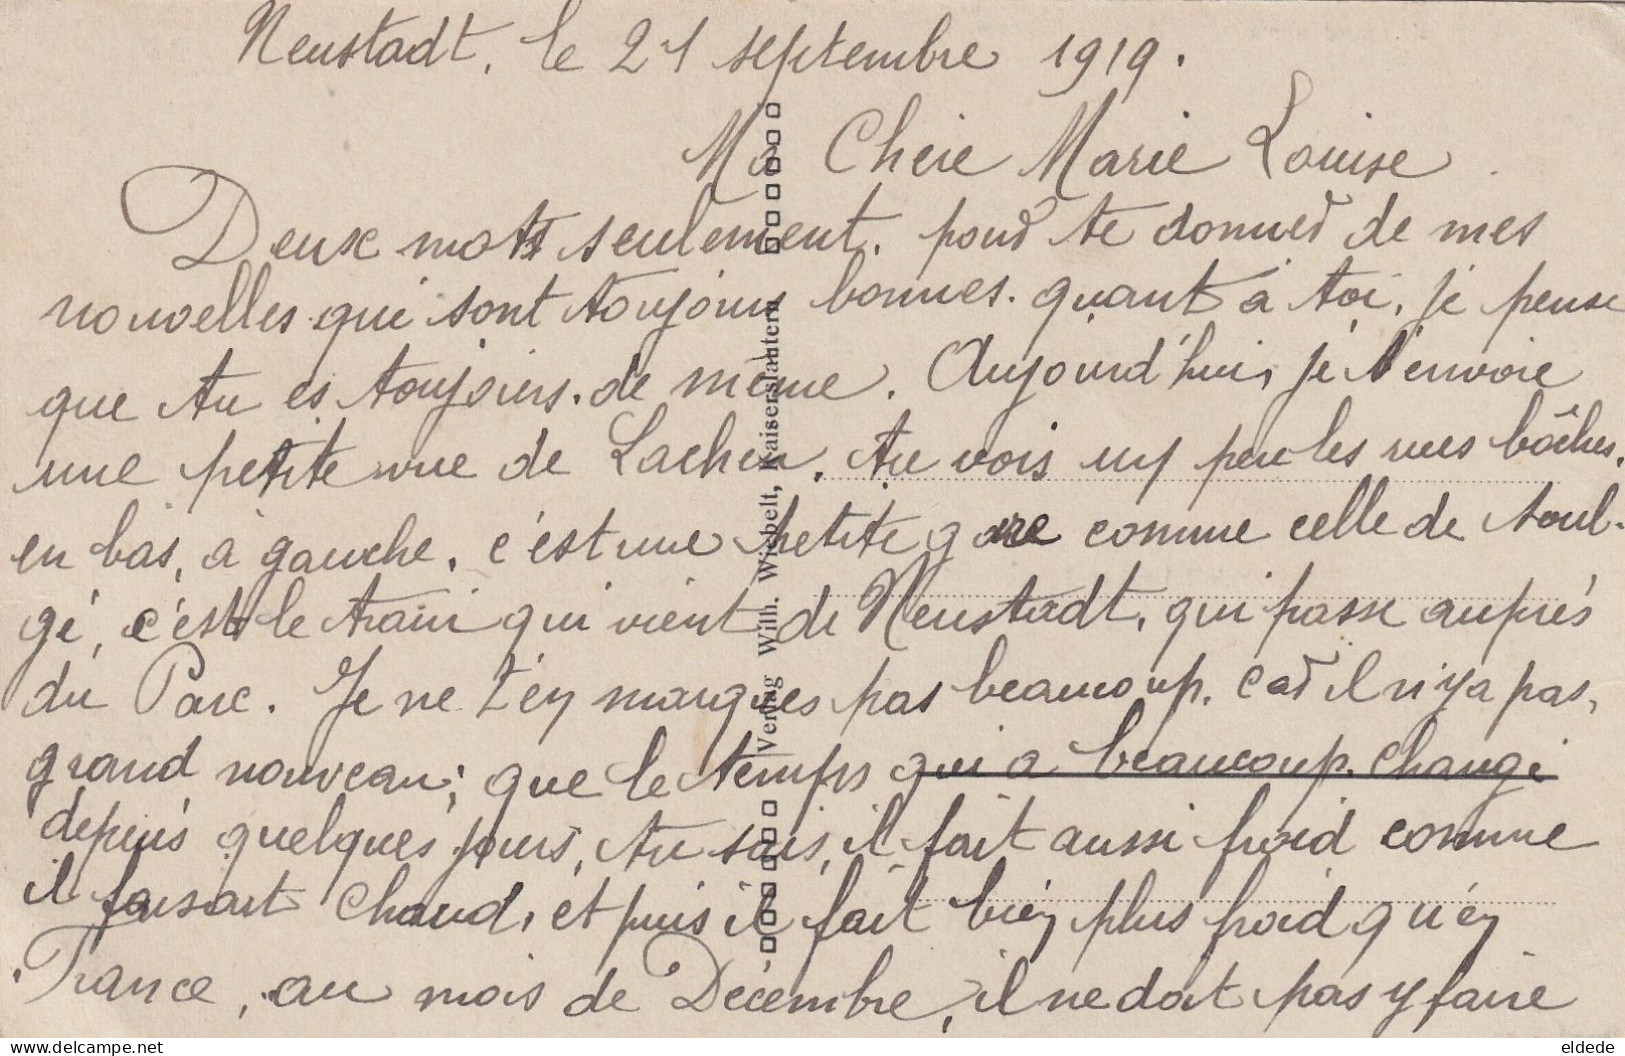 Neustadt, le 21 septembre 1919.
Ma Chère Marie Louise
Deux mots seulement, pour te donner de mes
nouvelles qui sont toujours bonnes. quant à toi, je pense
que tu es toujours de même. Aujourd'hui, je t'envoie
une petite vue de Lachen, tu vois un peu les rues bôches,
en bas, à gauche, c'est une petite gare comme celle de Soul-
gé, c'est le train qui vient de Neustadt, qui passe auprès
du Parc. Je ne t'en marques pas beaucoup, car il n'y a pas,
grand nouveau; que le temps qui a beaucoup changé
depuis quelques jours, tu sais, il fait aussi froid comme
il faisait chaud, et puis il fait bien plus froid qu'en
France, au mois de Décembre, il ne doit pas y faire
Verlag Wilh. Wiebelt, Kaiserslautern
eldede